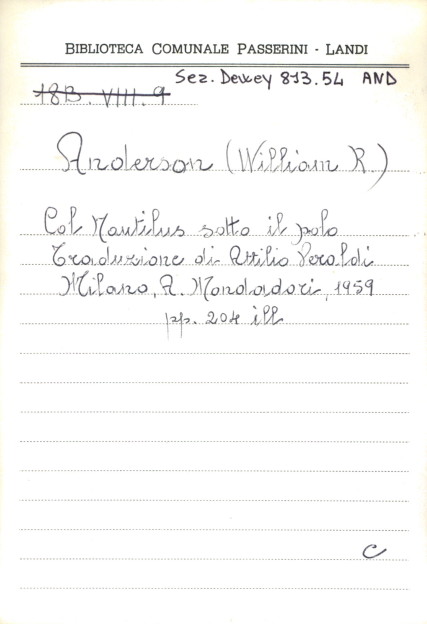 BIBLIOTECA COMUNALE PASSERINI - LANDI
Sez. Dewey 813.54 AND
18B. VIII. 9
Anderson (William R.)
Col Nautilus sotto il polo
Traduzione di Attilio Veraldi
Milano, A. Mondadori, 1959
pp. 204 ill
C